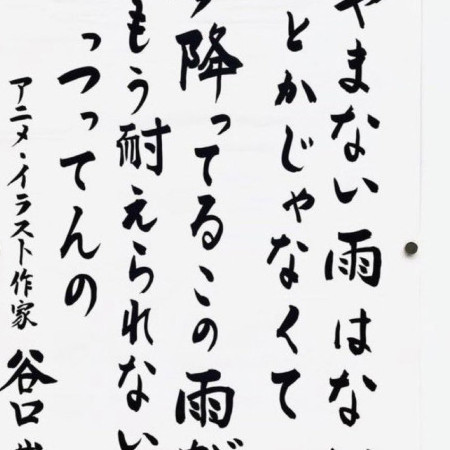 やまない雨はない
とかじゃなくて
今降ってるこの雨が
もう耐えられない
っつってんの
アニメ・イラスト作家 谷口